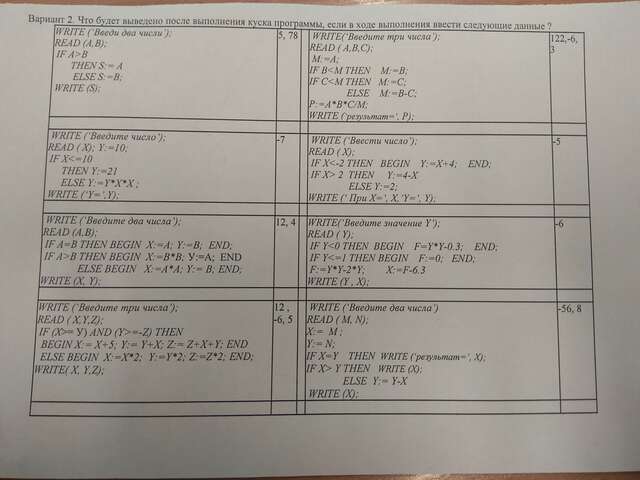 Вариант 2. Что будет выведено после выполнения куска программы, если в ходе выполнения ввести следующие данные ?
WRITE ('Введи два числи');
READ (A,B);
IF A>B
THEN S:= A
ELSE S:=B;
WRITE (S);
5, 78
WRITE('Введите три числа');
READ ( A,B,C);
M:=A;
IF B<M THEN M:=B;
IF C<M THEN M:=C,
ELSE M:=B-C;
P:=A*B*C/M;
WRITE ('результат=', P);
122,-6,
3
WRITE ('Введите число');
READ ( X); Y:=10;
IF X<=10
THEN Y:=21
ELSE Y:=Y*X*X ;
WRITE ('Y=',Y);
-7
WRITE ('Ввести число');
READ ( X);
IF X<-2 THEN BEGIN Y:=X+4; END;
IF X> 2 THEN Y:=4-X
ELSE Y:=2;
WRITE (' При X=', X,'Y=', Y);
-5
WRITE ('Введите два числа');
READ (A,B);
IF A=B THEN BEGIN X:=A; Y:=B; END;
IF A>B THEN BEGIN X:=B*B; У:=A; END
ELSE BEGIN X:=A*A; Y:= B; END;
WRITE (X, Y);
12, 4
WRITE('Введите значение Y');
READ ( Y);
IF Y<0 THEN BEGIN F=Y*Y-0.3; END;
IF Y<=1 THEN BEGIN F:=0; END;
F:=Y*Y-2*Y; X:=F-6.3
WRITE (Y , X);
-6
WRITE ('Введите три числа');
READ ( X,Y,Z);
IF (X>= У) AND (Y>=-Z) THEN
BEGIN X:= X+5; Y:= Y+X; Z:= Z+X+Y; END
ELSE BEGIN X:=X*2; Y:=Y*2; Z:=Z*2; END;
WRITE( X, Y,Z);
12 ,
-6, 5
WRITE ('Введите два числа')
READ ( M, N);
X:= M ;
Y:= N;
IF X=Y THEN WRITE ('результат=', X);
IF X> Y THEN WRITE (X);
ELSE Y:= Y-X
WRITE (X);
-56, 8